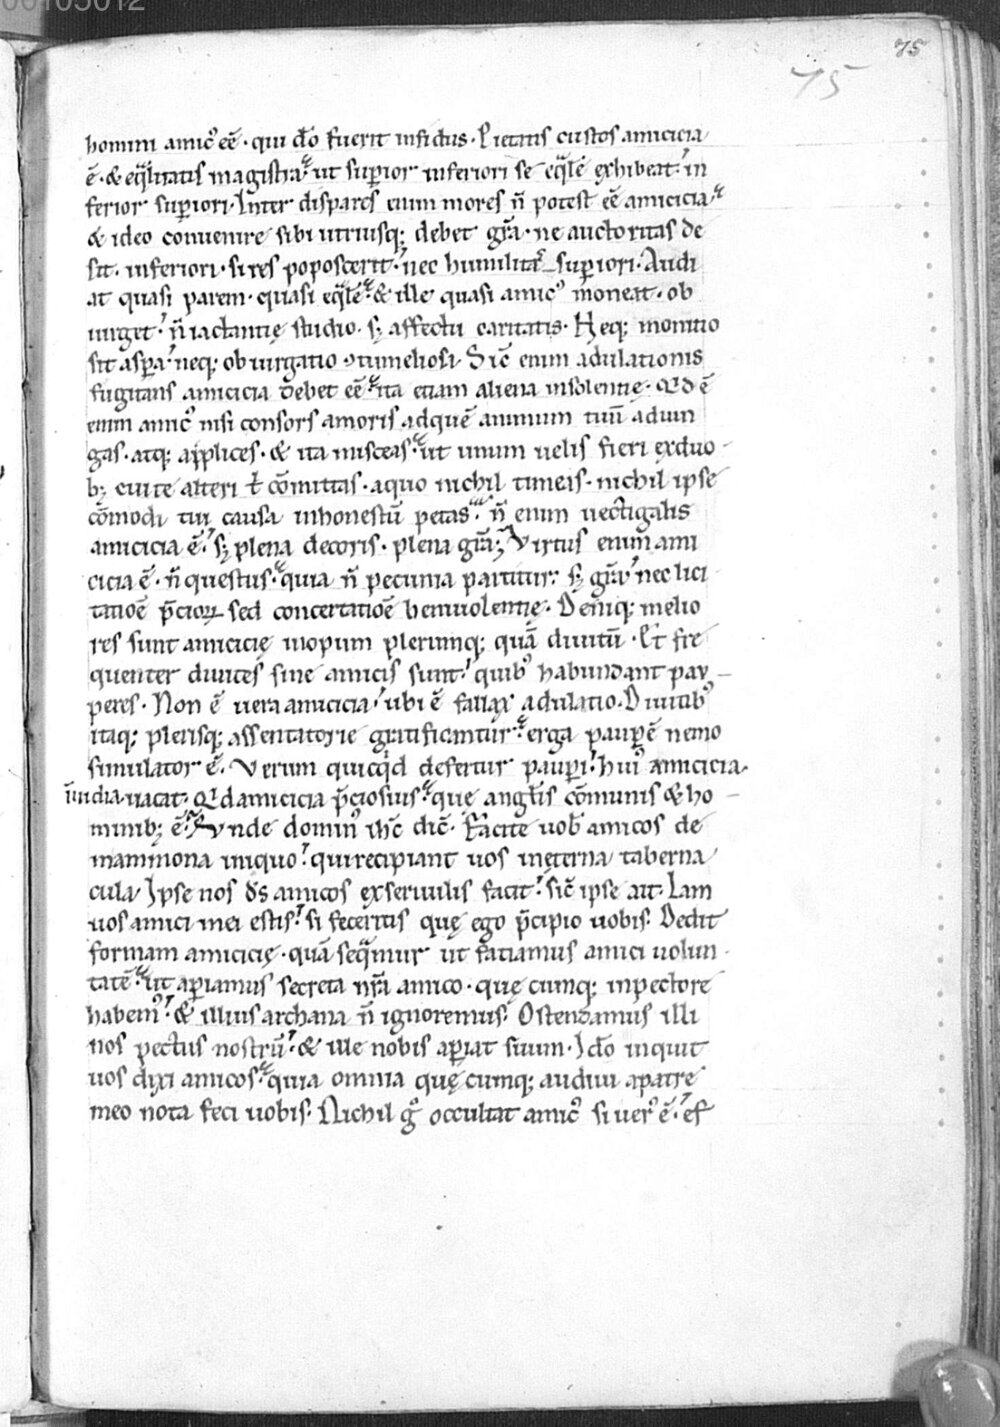 00105012
75
75
homini amic᷒ eē · qui dō fuerit infidus · Pietatis custos amicicia
ē · & eq̄litatis magistra · ut sup̄ior inferiori se eq̄lē exhibeat · in
ferior sup̄iori · Inter dispares enim mores n̄ potest eē amicicia ·
& ideo convenire sibi utriusq; debet gr̄a · ne auctoritas de
sit · inferiori · si res poposcerit · nec humilitas superiori · Audi
at quasi parem · quasi eq̄lē · & ille quasi amic᷒ moneat · ob
iurget · n̄ iactantię studio · s; affectu caritatis · Neq; monitio
sit asp̄a · neq; obiurgatio ↄtumeliosa · Sic̄ enim adulationis
fugitans amicicia debet eē · ita etiam aliena insolentię · Qd ē
enim amic᷒ nisi consors amoris ad quē animum tuū adiun
gas · atq; applices · & ita misceas · ut unum uelis fieri ex duo
b; cui te alteri t̄ cōmittas · a quo nichil timeas · nichil ipse
cōmodi tui causa inhonestū petas · n̄ enim uectigalis
amicicia ē · s; plena decoris · plena gr̄a; Virtus enim ami
cicia ē · n̄ questus · quia n̄ pecunia partitur · s; gr̄a · nec lici
tatioē p̄cioꝝ sed concertatioē beniuolentię · Deniq; melio
res sunt amicicię inopum plerumq; quā diuitū · Et fre
quenter diuites sine amicis sunt · quib᷒ habundant pau
peres · Non ē uera amicicia · ubi ē fallax adulatio · Diuitib᷒
itaq; plerisq; assentatorie gratificantur · erga paup̄ē nemo
simulator ē · Verum quicq̄d defertur paup̄i · hui᷒ amicicia
īuidia uacat · Qd amicicia p̄ciosius · que angl̄is cōmunis & ho
minib; ē · Vnde domin᷒ ihc̄ dic̄ · Facite uob̄ amicos de
mammona iniquo · qui recipiant uos in ęterna taberna
cula · Ipse nos d̄s amicos ex seruulis facit · sic̄ ipse ait · Iam
uos amici mei estis · si feceritis quę ego p̄cipio uobis · Dedit
formam amicicię · quā seq̄mur ut fatiamus amici uolun
tatē · ut ap̄iamus secreta nr̄a amico · quę cumq; in pectore
habem᷒ · & illius archana n̄ ignoremus · Ostendamus illi
nos pectus nostrū · & ille nobis ap̄iat suum · Idō inquit
uos dixi amicos · quia omnia quę cumq; audiui a patre
meo nota feci uobis · Nichil g̊ occultat amic᷒ si uer᷒ ē · ef